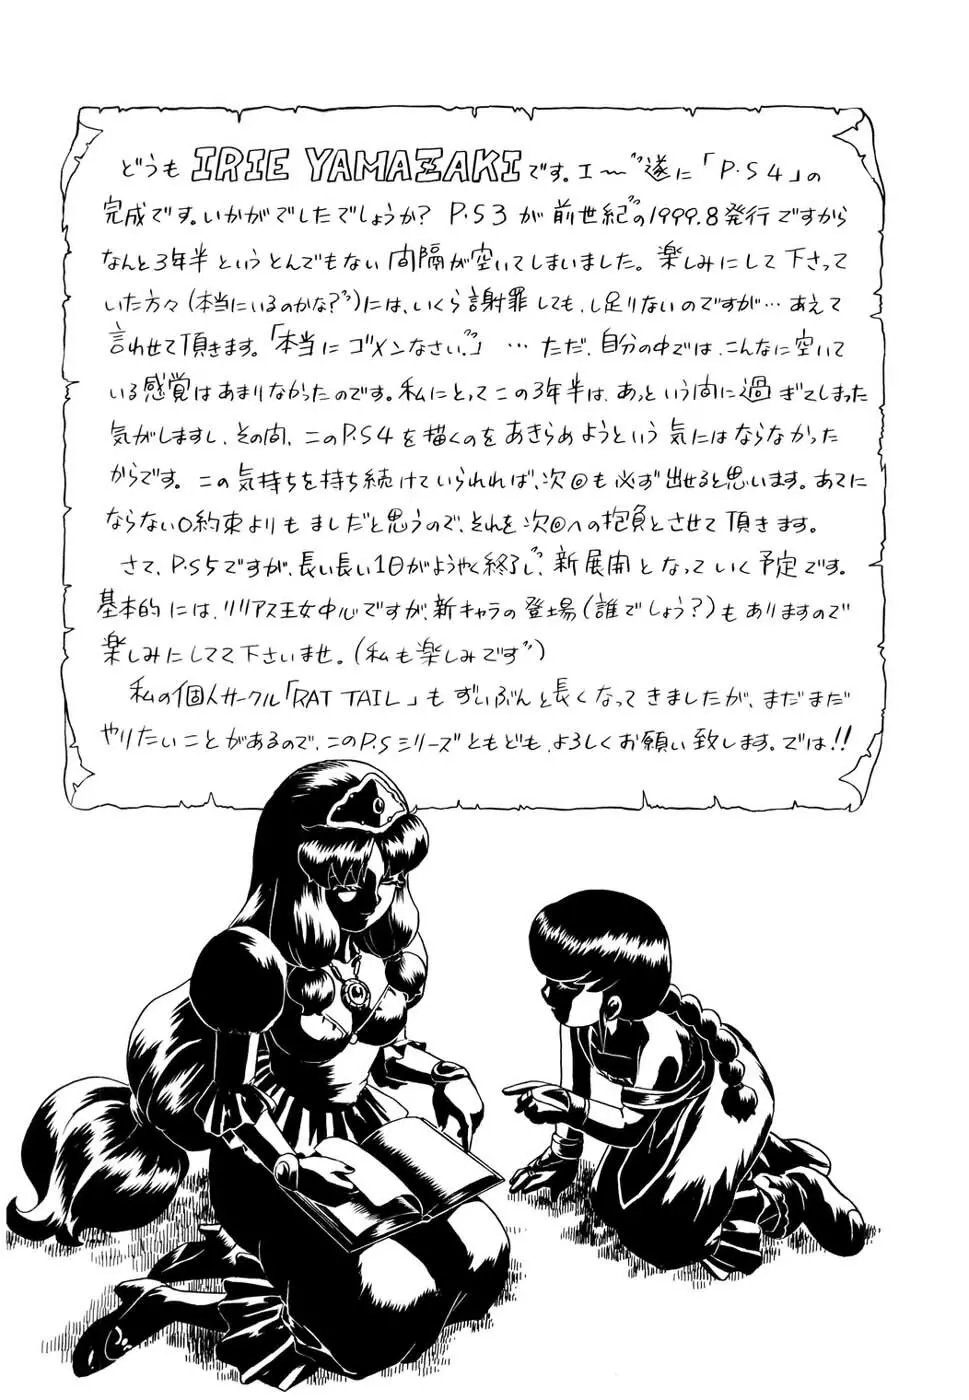 どうも IRIE YAMAZAKIです。エ〜゛遂に「P.S4」の
完成です。いかがでしたでしょうか? P.S3が前世紀゛の1999.8発行ですから
なんと3年半というとんでもない間隔が空いてしまいました。楽しみにして下さって
いた方々(本当にいるのかな?゛)には、いくら謝罪しても、し足りないのですが…あえて
言わせて頂きます。「本当にゴメンなさい゛。」…ただ、自分の中では、こんなに空いて
いる感覚はあまりなかったのです。私にとってこの3年半は、あっという間に過ぎてしまった
気がしますし、その間、このP.S4を描くのをあきらめようという気にはならなかった
からです。この気持ちを持ち続けていられれば、次回も必ず出せると思います。あてに
ならない口約束よりもましだと思うので、それを次回への抱負とさせて頂きます。
さて、P.S5ですが、長い長い1日がようやく終了し゛、新展開となっていく予定です。
基本的には、リリアス王女中心ですが、新キャラの登場(誰でしょう?)もありますので
楽しみにしてて下さいませ。(私も楽しみです゛)
私の個人サークル「RAT TAIL」もずいぶんと長くなってきましたが、まだまだ
やりたいことがあるので、このP.Sシリーズともども、よろしくお願い致します。では!!